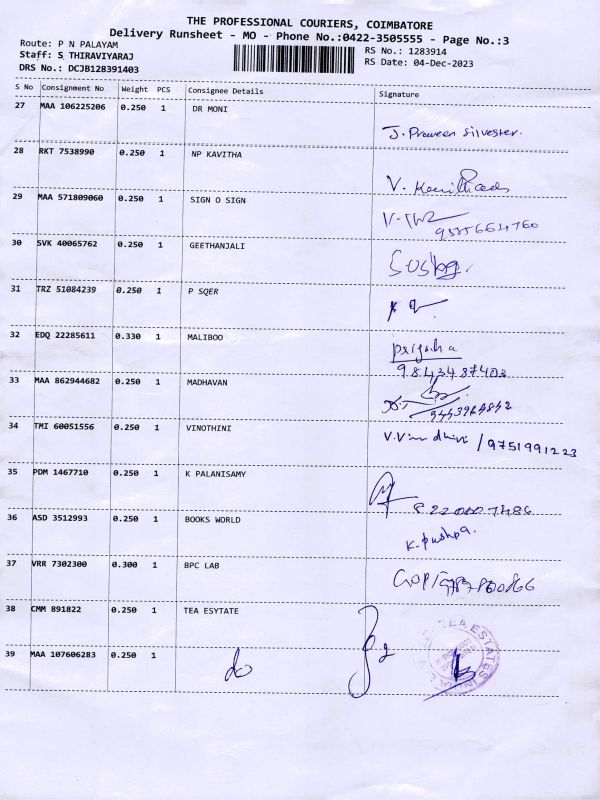 THE PROFESSIONAL COURIERS, COIMBATORE
Delivery Runsheet - MO - Phone No.:0422-3505555 - Page No.:3
Route: P N PALAYAM
Staff: S THIRAVIYARAJ
DRS No.: DCJB128391403
RS No.: 1283914
RS Date: 04-Dec-2023
S No Consignment No Weight PCS Consignee Details Signature
27 MAA 106225206 0.250 1 DR MONI
J. Praveen Silvester.
28 RKT 7538990 0.250 1 NP KAVITHA
29 MAA 571809060 0.250 1 SIGN O SIGN
30 SVK 40065762 0.250 1 GEETHANJALI
31 TRZ 51084239 0.250 1 P SQER
32 EDQ 22285611 0.330 1 MALIBOO
9843487403
33 MAA 862944682 0.250 1 MADHAVAN
34 TMI 60051556 0.250 1 VINOTHINI
/ 9751991223
35 PDM 1467710 0.250 1 K PALANISAMY
36 ASD 3512993 0.250 1 BOOKS WORLD
K. Pushpa.
37 VRR 7302300 0.300 1 BPC LAB
38 CMM 891822 0.250 1 TEA ESYTATE
TEA ESTATES
39 MAA 107606283 0.250 1 do